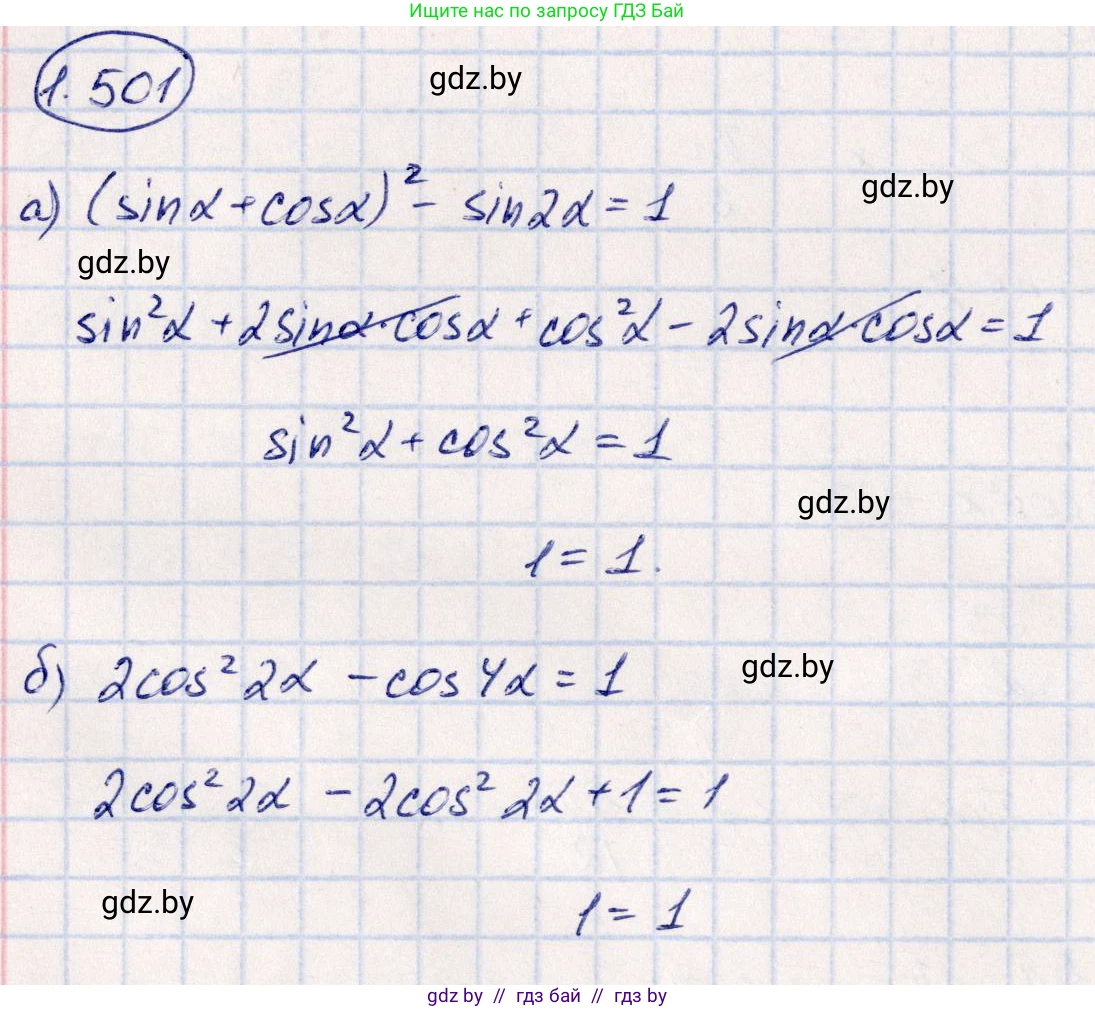 Ищите нас по запросу ГДЗ Бай
1.501
gdz.by
а) (sinα + cosα)² - sin2α = 1
gdz.by
gdz.by
sin²α + 2sinα·cosα + cos²α - 2sinα·cosα = 1
sin²α + cos²α = 1
gdz.by
1 = 1.
б) 2cos²2α - cos4α = 1
gdz.by
2cos²2α - 2cos²2α + 1 = 1
gdz.by
1 = 1
gdz by // гдз бай // гдз by